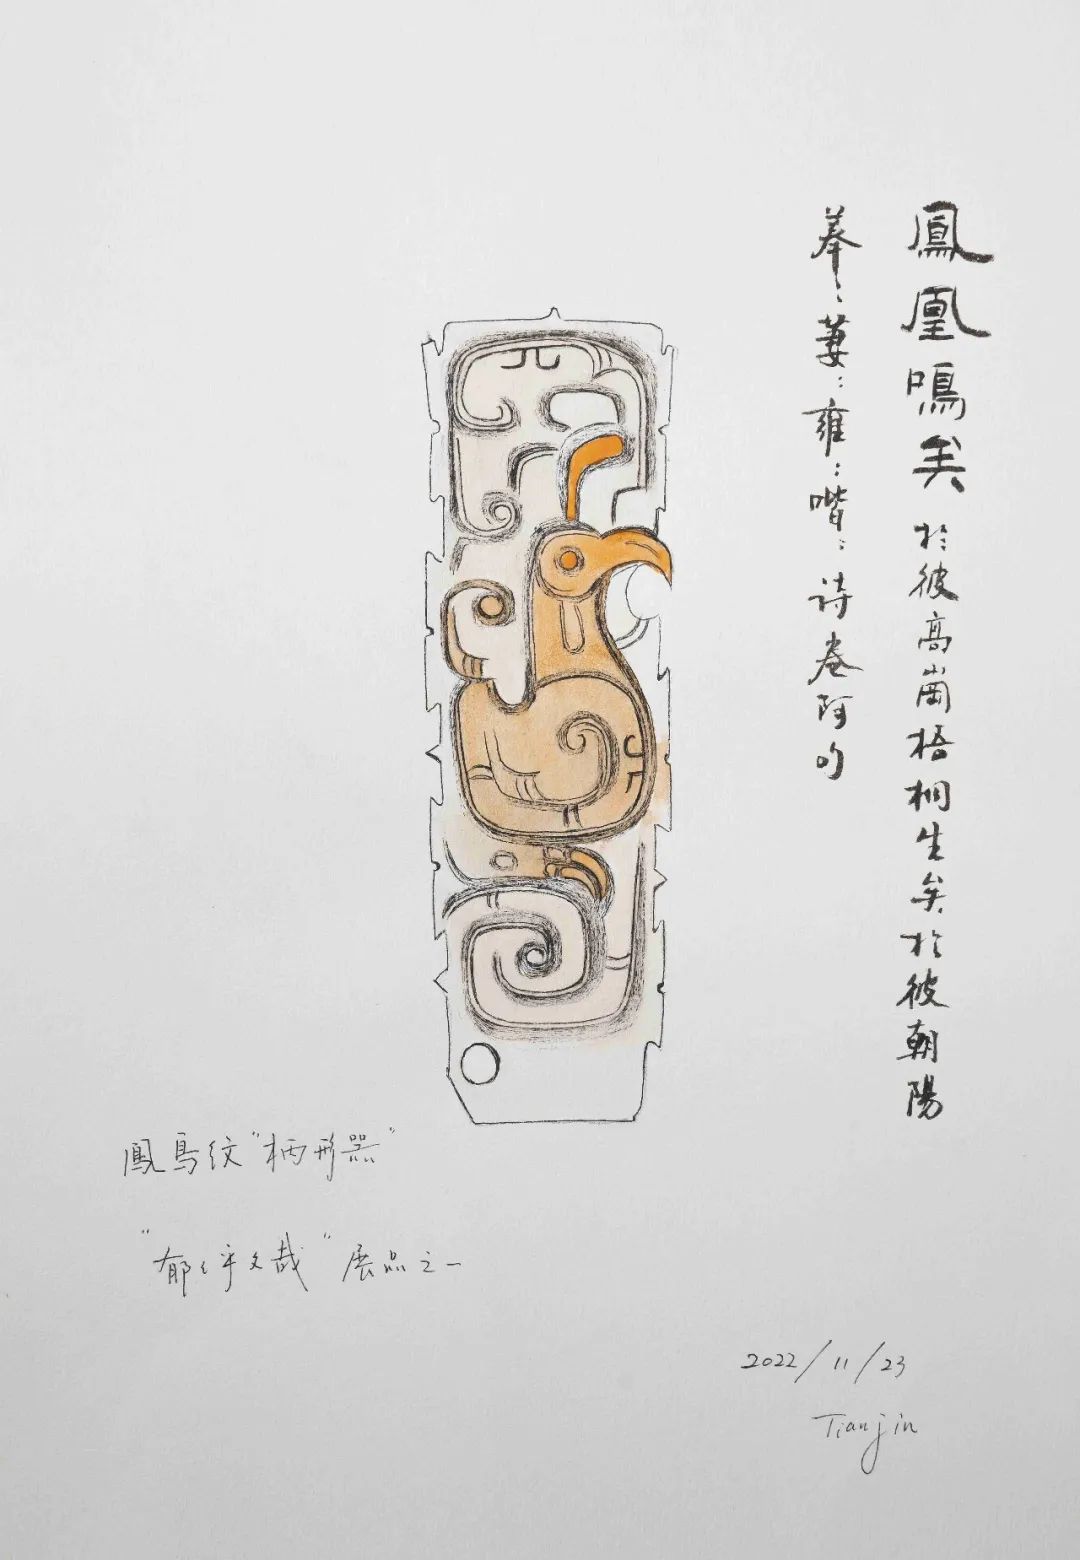 鳳凰鳴矣於彼高崗梧桐生矣於彼朝陽
菶〻萋〻雍〻喈〻诗卷阿句
鳳鳥纹"柄形器"
"郁〻乎文哉"展品之一
2022/11/23
Tianjin